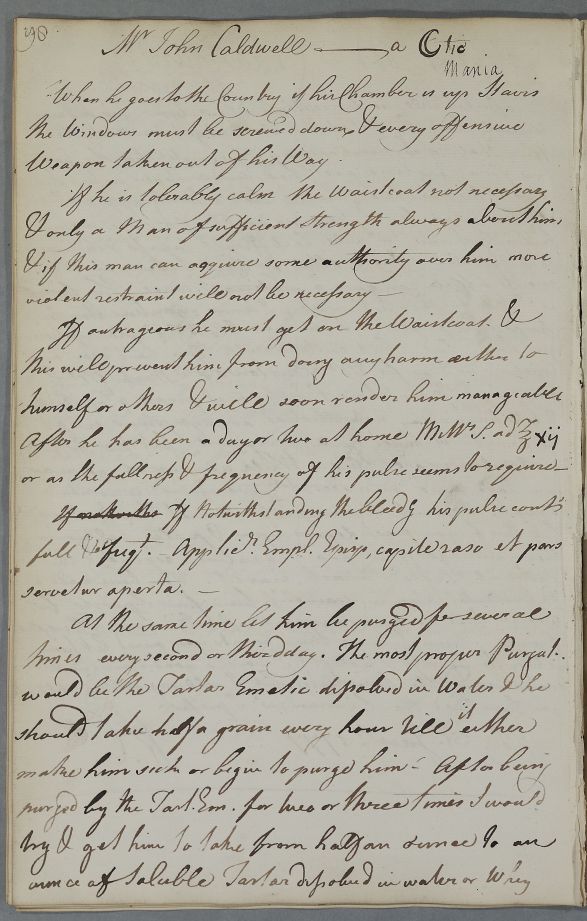 290.
Mr. John Caldwell — a
Mania
When he goes to the Country if his Chamber is up Stairs
the Windows must be screwed down, & every offensive
Weapon taken out of his Way.
If he is tolerably calm the Waistcoat not necessary
& only a Man of sufficient strength always about him,
& if this man can acquire some authority over him more
violent restraint will not be necessary —
If outrageous he must get on the Waistcoat. &
this will prevent him from doing any harm either to
himself or others & will soon render him manageable
After he has been a day or two at home M. Wr. S. ad ℥ xij
or as the fullness & frequency of his pulse seems to require
If Notwithstanding the bleedg his pulse cont.s
full & freqt. Applicr. Empl. Episp. capite raso et pars
servetur aperta. —
At the same time let him be purged for several
times every second or third day. The most proper Purgat.
would be the Tartar Emetic dissolved in Water & he
should take half a grain every hour till it either
make him sick or begin to purge him — After being
purged by the Tart. Em. for two or three times I would
try & get him to take from half an ounce to an
ounce of Soluble Tartar dissolved in water or Whey